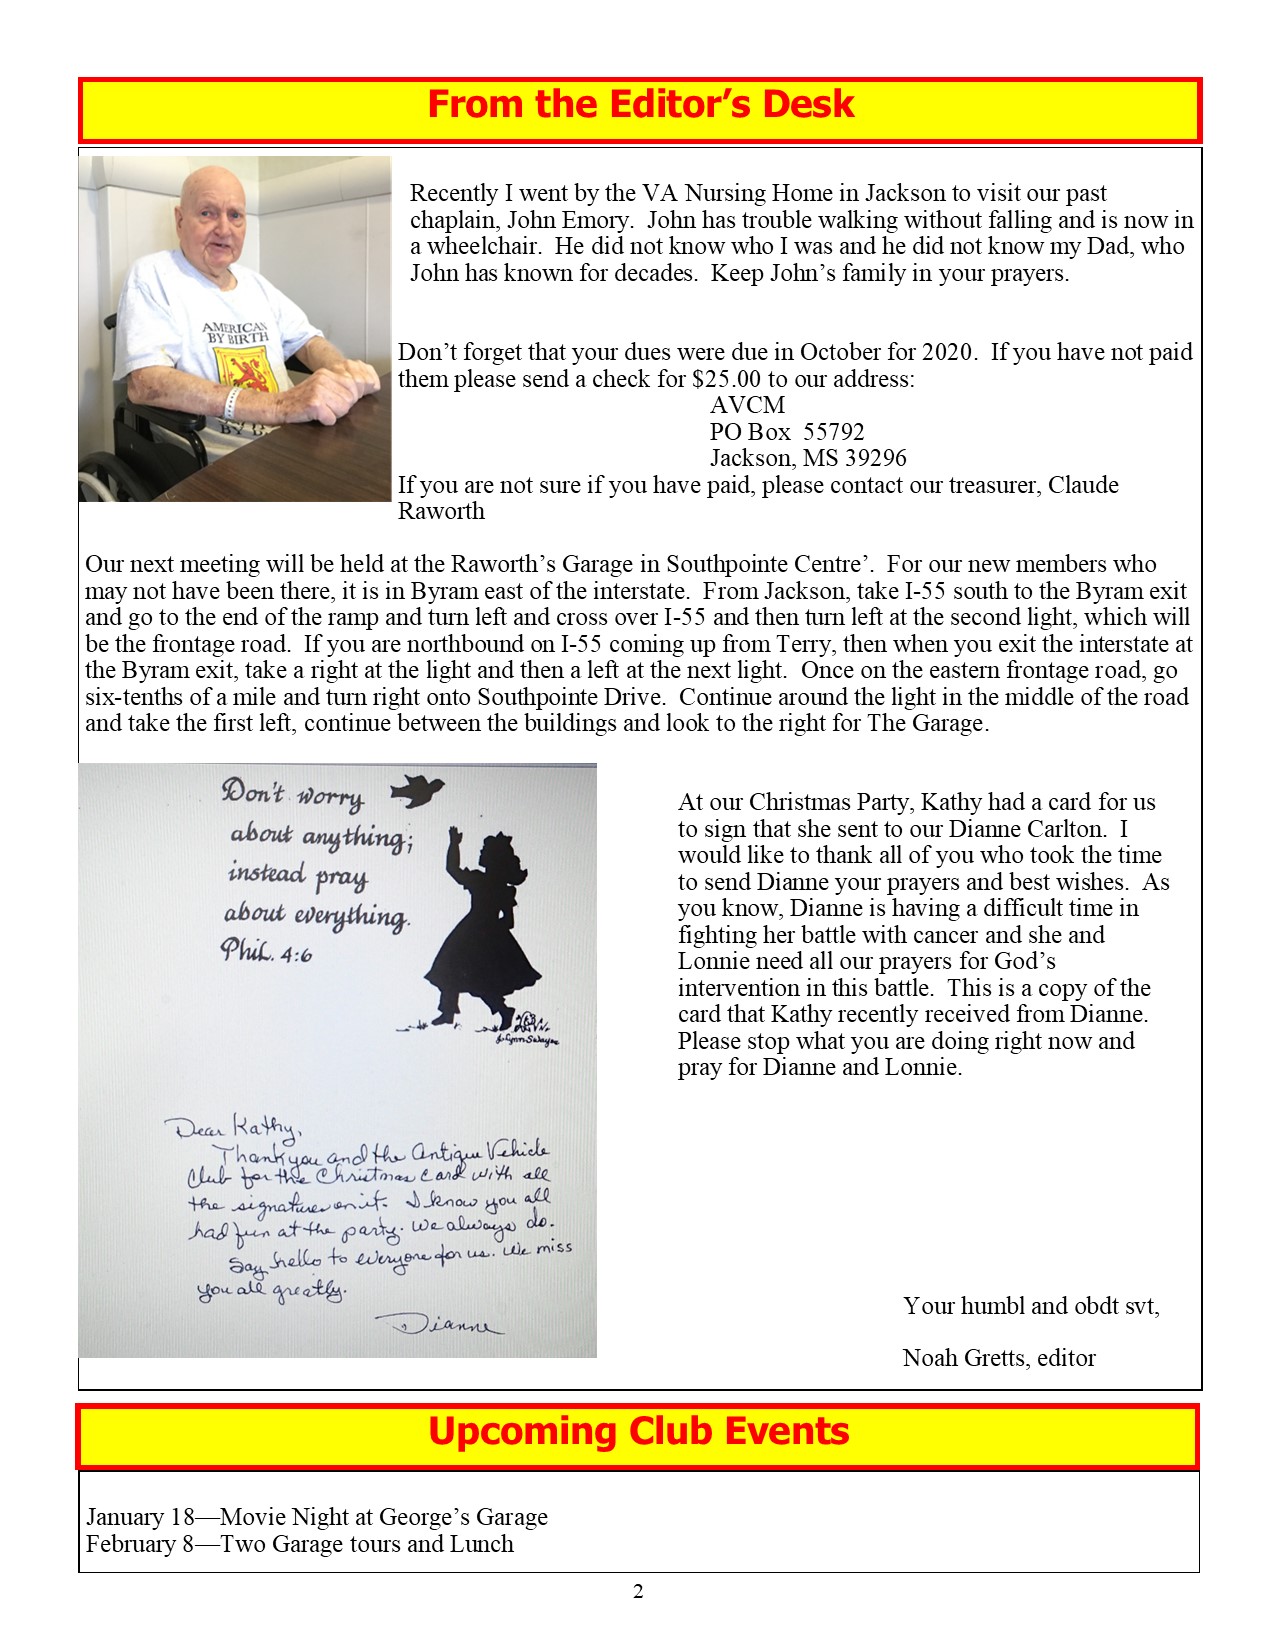 From the Editor’s Desk
Recently I went by the VA Nursing Home in Jackson to visit our past
chaplain, John Emory.  John has trouble walking without falling and is now in
a wheelchair.  He did not know who I was and he did not know my Dad, who
John has known for decades.  Keep John’s family in your prayers.
AMERICAN
BY BIRTH
BY
Don’t forget that your dues were due in October for 2020.  If you have not paid
them please send a check for $25.00 to our address:
AVCM
PO Box  55792
Jackson, MS 39296
If you are not sure if you have paid, please contact our treasurer, Claude
Raworth
Our next meeting will be held at the Raworth’s Garage in Southpointe Centre’.  For our new members who
may not have been there, it is in Byram east of the interstate.  From Jackson, take I-55 south to the Byram exit
and go to the end of the ramp and turn left and cross over I-55 and then turn left at the second light, which will
be the frontage road.  If you are northbound on I-55 coming up from Terry, then when you exit the interstate at
the Byram exit, take a right at the light and then a left at the next light.  Once on the eastern frontage road, go
six-tenths of a mile and turn right onto Southpointe Drive.  Continue around the light in the middle of the road
and take the first left, continue between the buildings and look to the right for The Garage.
Don't worry
about anything;
instead pray
about everything.
Phil. 4:6
Lynn Swayne
Dear Kathy,
Thank you and the Antique Vehicle
Club for the Christmas card with all
the signatures on it. I know you all
had fun at the party. We always do.
Say hello to everyone for us. We miss
you all greatly.
Dianne
At our Christmas Party, Kathy had a card for us
to sign that she sent to our Dianne Carlton.  I
would like to thank all of you who took the time
to send Dianne your prayers and best wishes.  As
you know, Dianne is having a difficult time in
fighting her battle with cancer and she and
Lonnie need all our prayers for God’s
intervention in this battle.  This is a copy of the
card that Kathy recently received from Dianne.
Please stop what you are doing right now and
pray for Dianne and Lonnie.
Your humbl and obdt svt,
Noah Gretts, editor
Upcoming Club Events
January 18—Movie Night at George’s Garage
February 8—Two Garage tours and Lunch
2